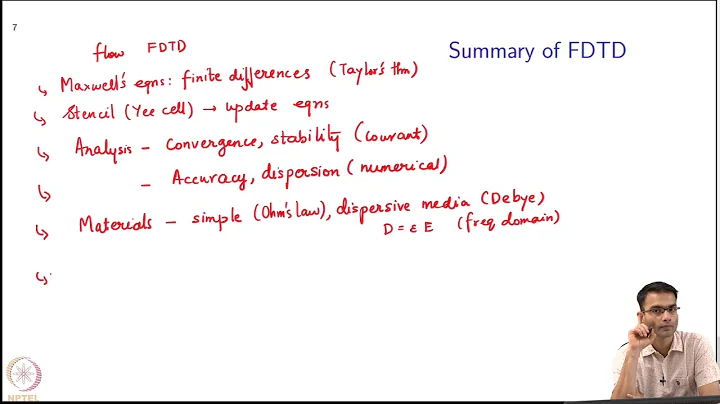 7
Summary of FDTD
flow FDTD
Maxwell's eqns: finite differences (Taylor's thm)
Stencil (Yee cell) → update eqns
Analysis - Convergence, stability (Courant)
- Accuracy, dispersion (numerical)
Materials - simple (Ohm's law), dispersive media (Debye)
D = ε E (freq domain)
NPTEL